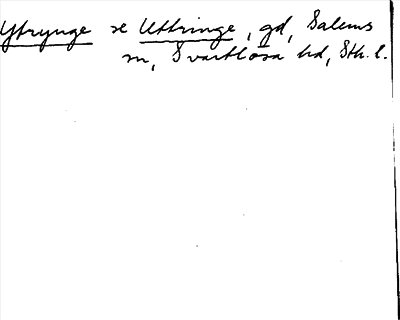 Ytrynge se Uttringe, gd, Salems
sn, Svartlösa hd, Sth. l.